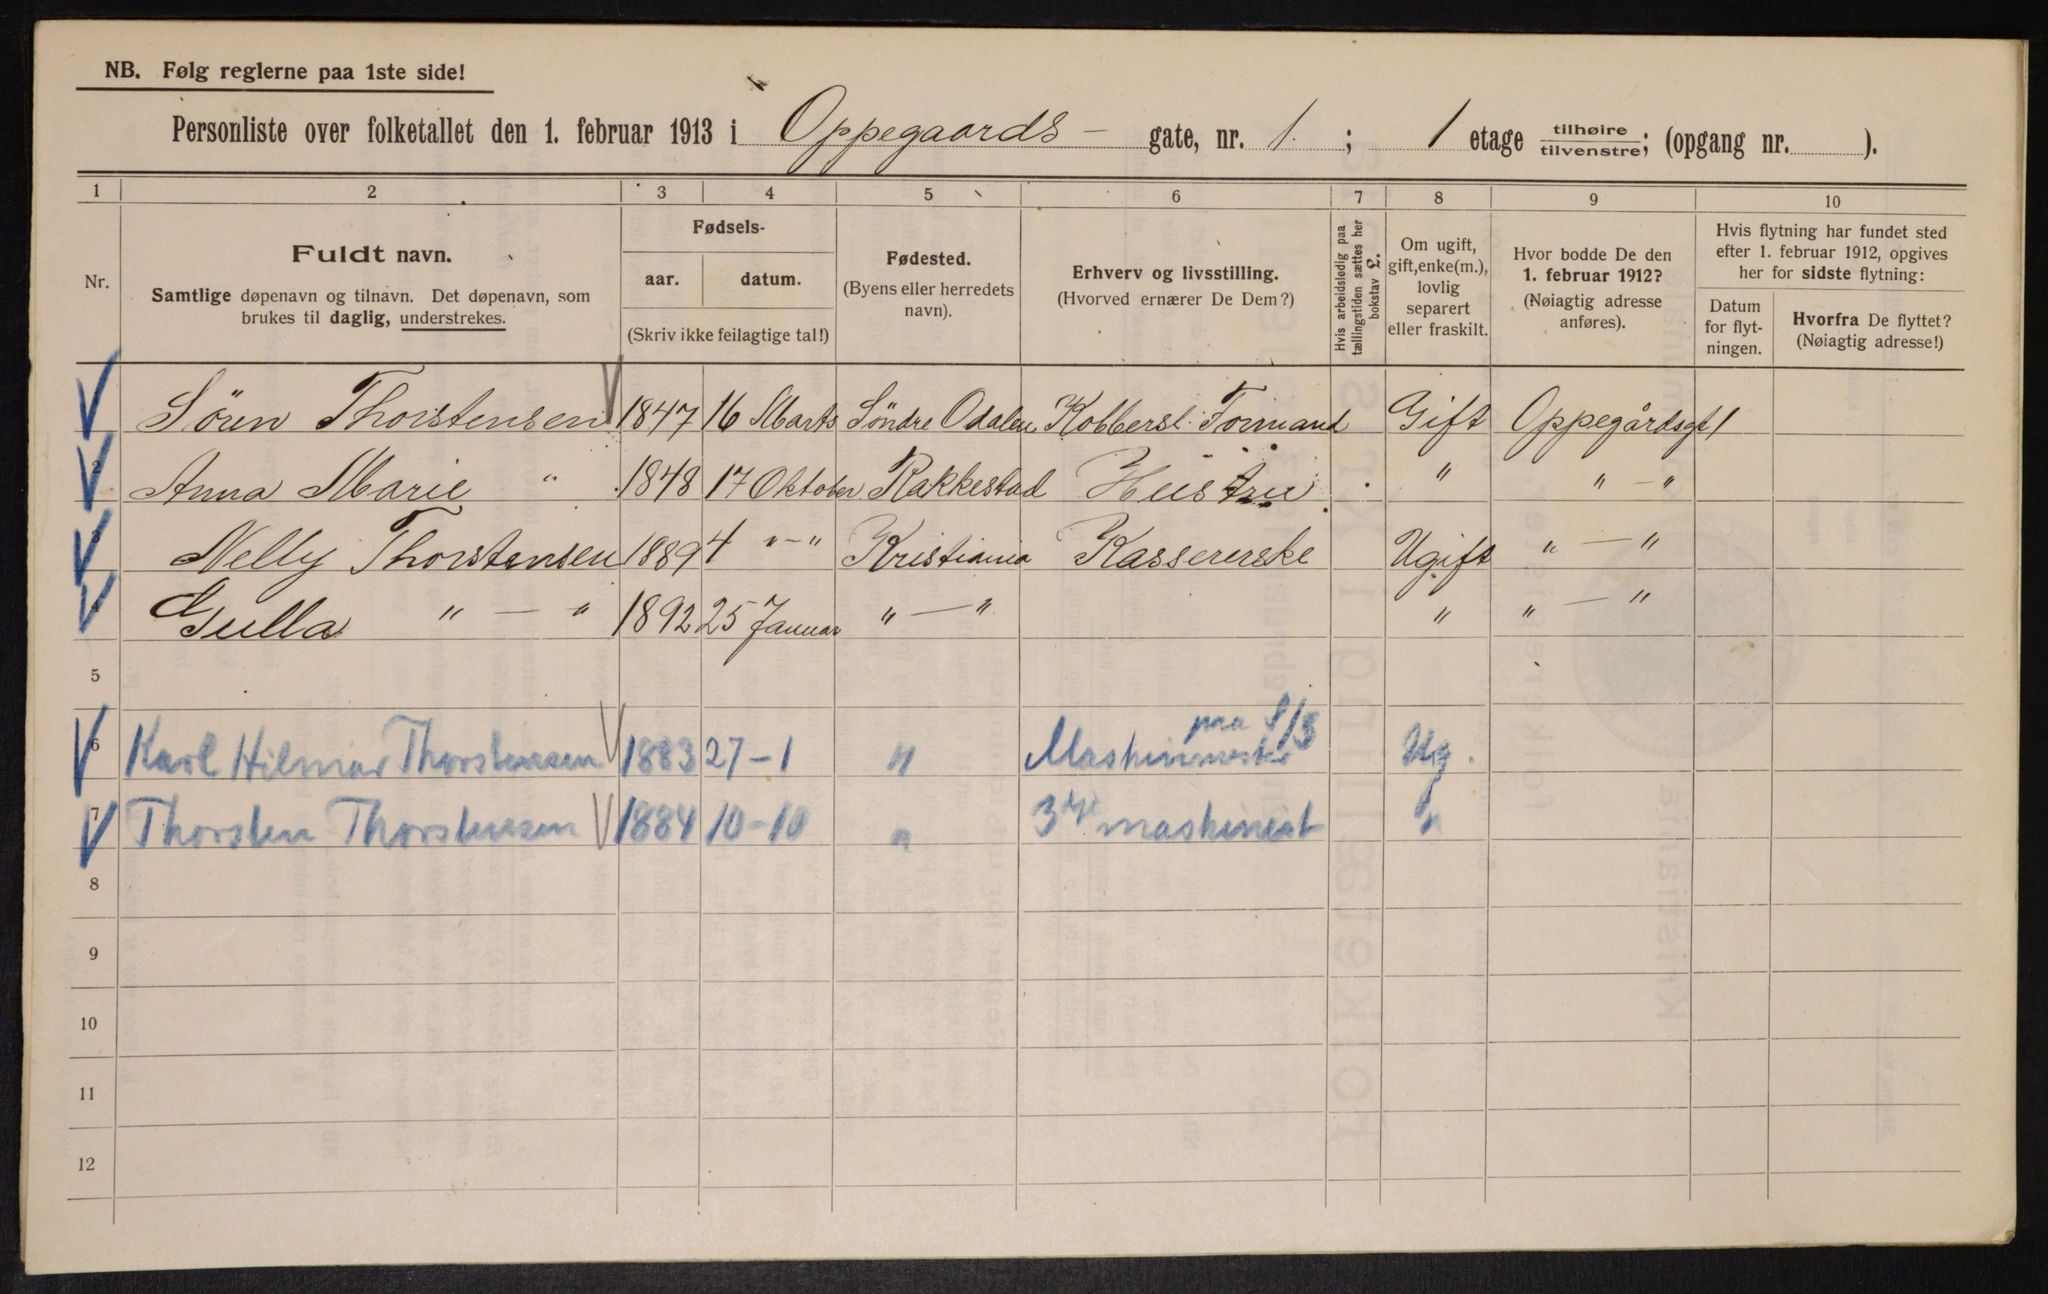 NB. Følg reglerne paa 1ste side!
Personliste over folketallet den 1. februar 1913 i Oppegaards- gate, nr. 1. ; 1 etage tilhøire/tilvenstre; (opgang nr. ).
1 2 3 4 5 6 7 8 9 10
Nr.
Fuldt navn.
Samtlige døpenavn og tilnavn. Det døpenavn, som
brukes til daglig, understrekes.
Fødsels-
aar. datum.
(Skriv ikke feilagtige tal!)
Fødested.
(Byens eller herredets
navn).
Erhverv og livsstilling.
(Hvorved ernærer De Dem?)
Hvis arbeidsledig paa
tællingstiden sættes her
bokstav L.
Om ugift,
gift, enke(m.),
lovlig
separert
eller fraskilt.
Hvor bodde De den
1. februar 1912?
(Nøiagtig adresse
anføres).
Hvis flytning har fundet sted
efter 1. februar 1912, opgives
her for sidste flytning:
Datum
for flyt-
ningen.
Hvorfra De flyttet?
(Nøiagtig adresse!)
Sören Thorstensen 1847 16 Marts Söndre Odalen Kobbersl. Formand Gift Oppegårdsgt 1
2 Anna Marie " 1848 17 Oktober Rakkestad Hustru " " — "
3 Nelly Thorstensen 1889 4 " — " Kristiania Kassererske Ugift " — "
4 Gulla " — " 1892 25 Januar " — " " " — "
5
paa S/S
6 Karl Hilmar Thorstensen 1883 27-1 " Maskinmester Ug.
7 Thorsten Thorstensen 1884 10-10 " 3dje maskinist "
8
9
10
11
12